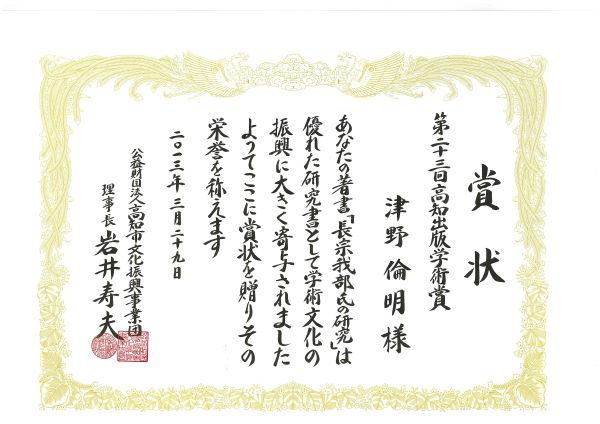 賞状
第二十三回高知出版学術賞
津野倫明様
あなたの著書「長宗我部氏の研究」は
優れた研究書として学術文化の
振興に大きく寄与されました
よってここに賞状を贈りその
栄誉を称えます
二〇一三年三月二十九日
公益財団法人高知市文化振興事業団
理事長 岩井寿夫